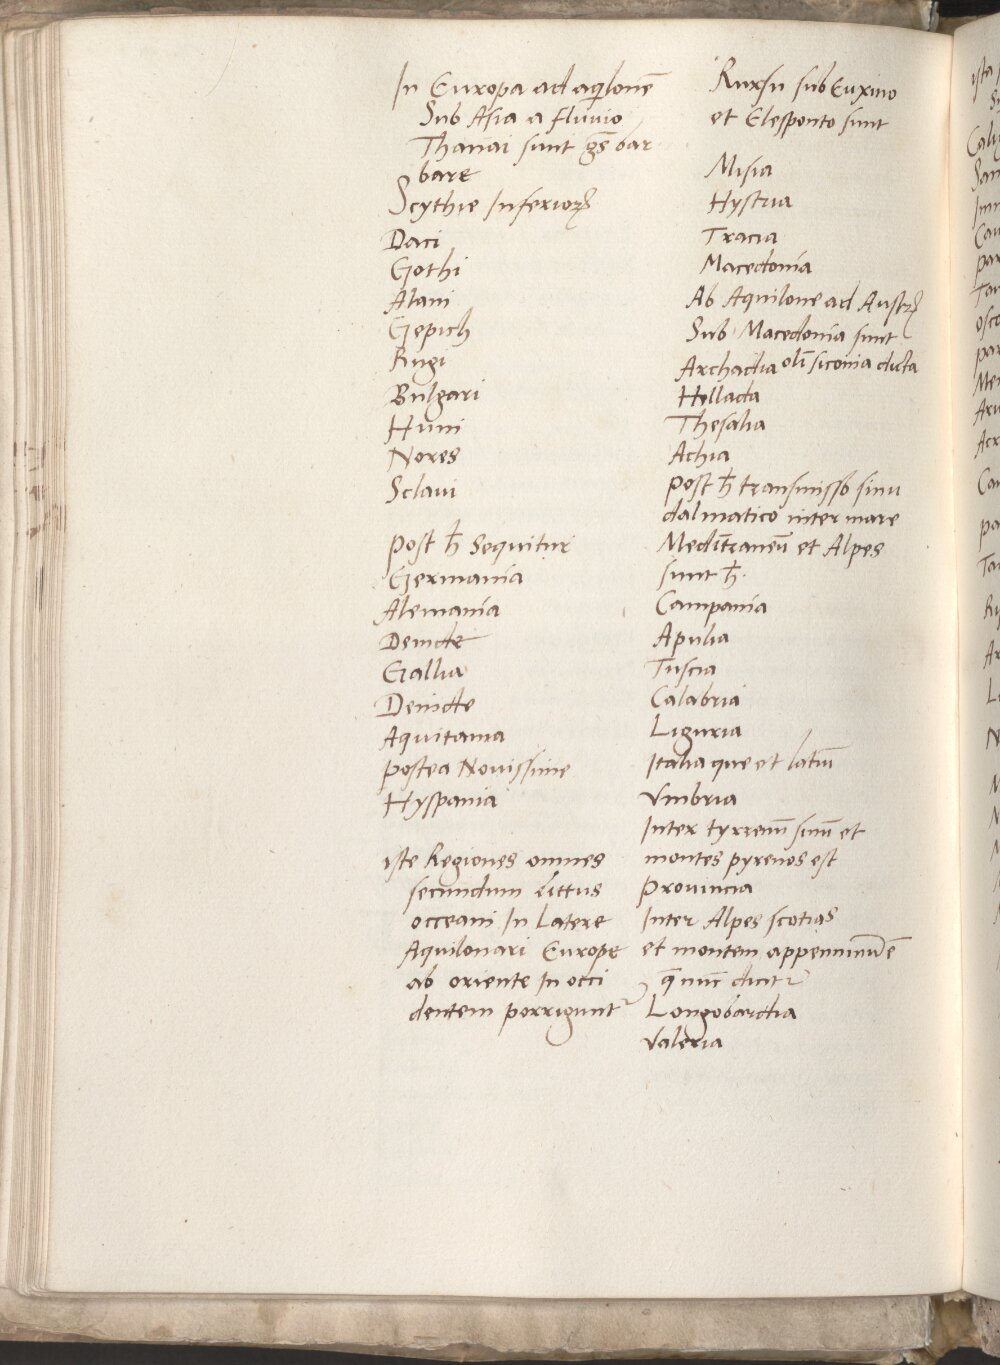 In Europa ad aq̇lonē
Sub Asia a fluuio
Thanai sunt gēs bar
bare
Scythie Inferioꝝ
Daci
Gothi
Alani
Gepich
Rugi
Bulgari
Huni
Nores
Sclaui
post h̄ Sequitur
Germania
Alemania
Deinde
Gallia
Deinde
Aquitania
postea Nouissime
Hyspania
iste Regiones omnes
secundum littus
occeani In Latere
Aquilonari Europe
ab oriente In occi
dentem porrigunt᷑
Rursu sub Euxino
et Elesponto sunt
Misia
Hystria
Tracia
Macedonia
Ab Aquilone ad Austꝝ
Sub Macedonia sunt
Archadia oli͞ siconia dicta
Hellada
Thesalia
Achia
post h̄ transmisso sinu
dalmatico inter mare
Medit̄raneū et Alpes
sunt h̄.
Campania
Apulia
Tuscia
Calabria
Liguria
Italia que et latiū
Vmbria
Inter tyrrenū sinū et
montes pyrenos est
Prouincia
Inter Alpes scotias
et montem appenninū ē
q̄ nūc dicit᷑
Longobardia
Valeria